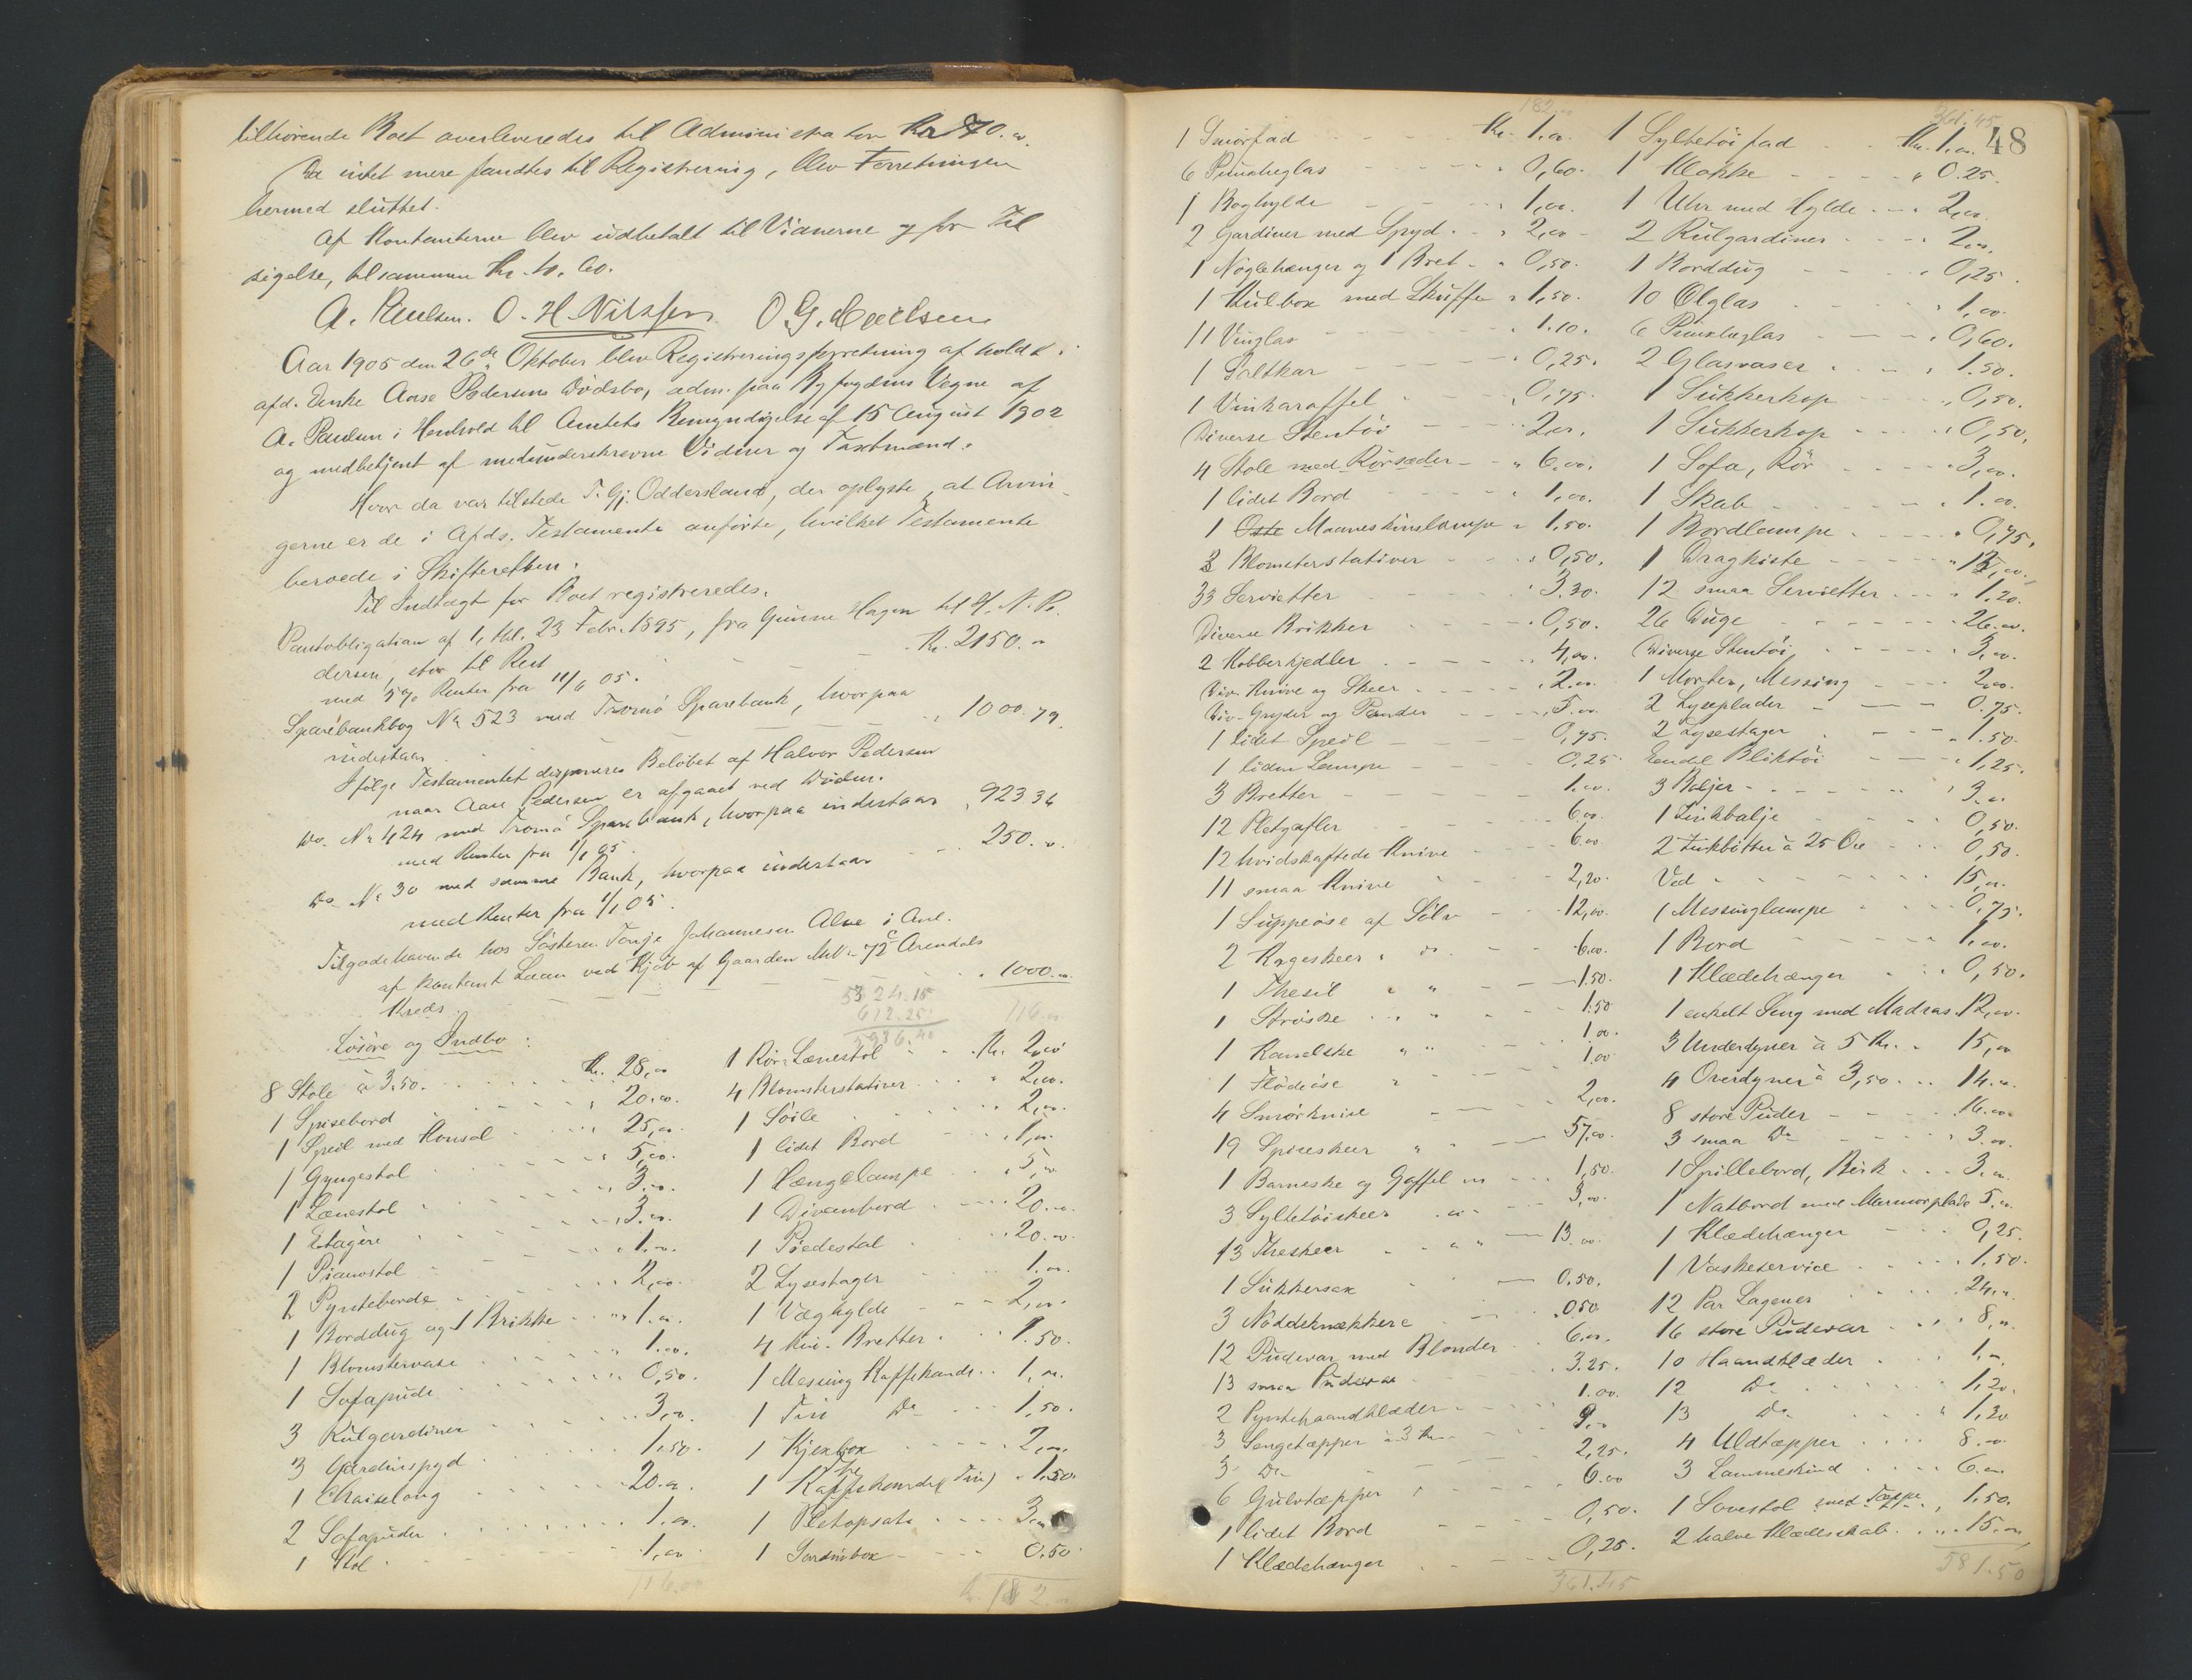 tilhørende Boet overleveredes til Administrator Kr 70.00.
Da intet mere fandtes til Registrering, blev Forretningen
hermed sluttet.
Af Kontanterne blev udbetalt til Vidnerne og for Til
sigelse, tilsammen Kr.
A. Paulsen. O. H. Nilssen O. G.
Aar 1905 den 26de Oktober blev Registreringsforretning afholdt i
afd. Enke Aase Pedersens Dödsbo, adm. paa Byfogdens Vegne af
A. Paulsen i Henhold til Amtets Bemyndigelse af 15 August 1902
og medbetjent af medunderskrevne Vidner og Taxtmænd.
Hvor da var tilstede T. Gj. Oddersland, der oplyste, at Arvin-
gerne er de i Afds. Testamente anførte, hvilket Testamente
beroede i Skifteretten.
Til Indtægt for Boet registreredes.
Pantobligation af 1, tbl. 23 Febr. 1895, fra Gunne Hagen til H. N. Pe
dersen, stor til Rest Kr. 2150.00
med 5% Renter fra 11/6 05.
Sparebankbog No 523 med Tromö Sparebank, hvorpaa
indestaar 1000.79.
Ifølge Testamentet disponeres Beløbet af Halvor Pedersen
naar Aase Pedersen er afgaaet ved Döden.
Do. No 424 med Tromö Sparebank, hvorpaa indestaar 923 36
med Renter fra 1/1 05.
Do No 30 med samme Bank, hvorpaa indestaar 250.00.
med Renter fra 1/1 05.
Tilgodehavende hos Søsteren Tonje Johannesen Alve i Anl.
af kontant Laan ved Kjöb af Gaarden MNo 72c Arendals
Kreds 1000.00
5324.15
612.25
5936.40
Løsøre og Indbo:
8 Stole à 3.50. Kr. 28,00
1 Spisebord 20.00.
1 Speil med Konsol 25,00.
1 Gyngestol 5,00.
1 Lænestol 3.00.
1 Etagére 3.00.
1 Pianostol 1.00.
2 Pynteborde 2,00.
1 Borddug og 1 Brikke 1.00.
1 Blomstervase 1.00.
1 Sofapude 0,50.
3 Rulgardiner 3,00.
3 Gardinspyd 1.50.
1 Chaiselong 20.00.
2 Sofapuder 1.00.
1 Stol 1,00
116.00
1 Rör-Lænestol Kr. 2,00
4 Blomsterstativer 2,00.
1 Söile 2,00.
1 lidet Bord 1,00.
1 Hængelampe 5,00.
1 Divanbord 20.00.
1 Piedestal 20.00.
2 Lysestager 1.00.
1 Væghylde 2,00.
4 Bretter 1.50.
1 Messing Kaffekande 1,00.
1 Tin Do 1,50.
1 Kjexbox 2,00.
1 The Kaffekande (Tin) 1.50.
1 Pletopsats 3.00
1 Sardinbox 0.50.
Kr. 182.00
182.00
1 Smørfad Kr. 1.00.
6 Punscheglas 0,60.
1 Boghylde 1,00.
2 Gardiner med Spyd 2,00
1 Nøglehænger og 1 Bret 0,50.
1 Kulbox med Skuffe 1,50.
11 Vinglas 1.10.
1 Saltkar 0,25.
1 Vinkaraffel 0,75.
Diverse Stentöi 2,00.
4 Stole med Rörsæder 6.00.
1 lidet Bord 1,00.
1 Maaneskinslampe 1,50.
2 Blomsterstativer 0,50.
33 Servietter 3.30.
Diverse Brikker 0,50.
2 Kobberkjedler 4,00.
Div. Knive og Skeer 2.00.
Div. Gryder og Pander 5.00.
1 lidet Speil 0,75.
1 liden Lampe 0,25.
3 Bretter 1.00.
12 Pletgafler 6.00.
12 hvidskaftede Knive 6.00
11 smaa Knive 2,20.
1 Suppeöse af Sölv 12,00.
2 Kageskeer do. 6.00.
1 Thesil 1.50.
1 Ströske 1.50
1 Kanelske 1.00.
1 Flödeöse 1.00
4 Smörknive 2,00.
19 Spiseskeer 57,00.
1 Barneske og Gaffel 1,50.
3 Syltetöiskeer 3,00.
13 Theskeer 13.00.
1 Sukkersax 0.50.
3 Nöddeknækkere 0.50
12 Pudevar med Blonder 6.00.
13 smaa Pudevar 3.25.
2 Pyntehaandklæder 1.00.
3 Sengetæpper à 3 Kr. 9.00
3 Do 2,25.
6 Gulvtæpper 6.00
1 lidet Bord 0,50.
1 Klædehænger 0,25.
48
1 Syltetöifad Kr. 1.00.
1 Klokke 0.25.
1 Uhr med Hylde 2,00.
2 Rulgardiner 2,00.
1 Borddug 0,25.
10 Ølglas 1,00.
6 Punscheglas 0,60.
2 Glasvaser 1.50.
1 Sukkerkop 0,50.
1 Sukkerkop 0,50.
1 Sofa, Rör 3,00.
1 Skab 1.00.
1 Bordlampe 0,75.
1 Dragkiste
12 smaa Servietter 1.20.
26 Duge 26.00.
Diverse Stentöi 3,00.
1 Morter, Messing 2,00.
2 Lyseplader 0.75.
2 Lysestager 1.50.
Endel Bliktöi 1,25.
3 Baljer 3.00
1 Zinkbalje 0,50.
2 Zinkbötter à 25 Öre 0,50.
Ved 15,00.
1 Messinglampe 0,75.
1 Bord 1.00.
1 Klædehænger 0,50.
1 enkelt Seng med Madras 12,00.
3 Underdyner à 5 Kr. 15,00
4 Overdyner à 3,50 14.00.
8 store Puder 16.00
3 smaa Do 3.00.
1 Spillebord, Birk 3.00.
1 Natbord med Marmorplade 5.00.
1 Klædehænger 0,25.
1 Vaskeservice 1,50.
12 Par Lagener 24,00.
16 store Pudevar 8,00.
10 Haandklæder 1,00.
12 Do 1,20.
13 Do 1,30
4 Uldtæpper 8.00.
3 Lammeskind 6.00
1 Sovestol med Tæppe 1.50.
2 halve Klædesskab 15.00
361.45
581.50